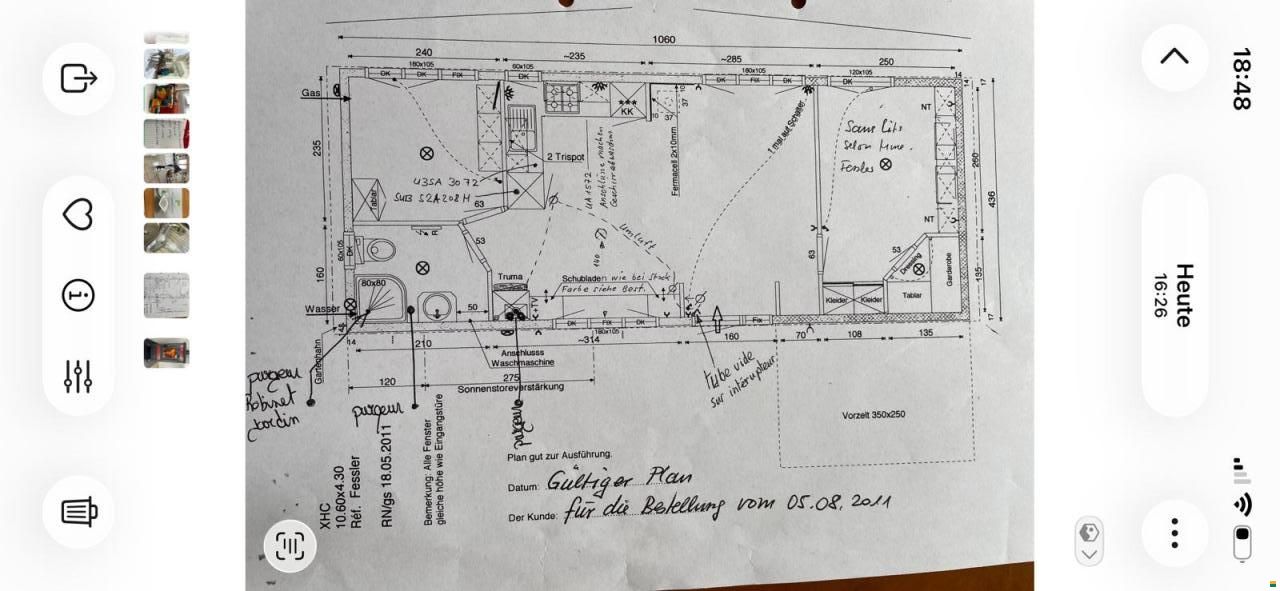 1060
240
~235
~285
250
180x105
60x105
180x105
120x105
DK
DK
FIX
DK
DK
FIX
DK
DK
14
14
17
Gas
KK
10
37
37
10
NT
235
260
436
2 Trispot
U3SA 3072
SUB S2A208H
UA1572
Anschlüsse machen
Fermacell 2x10mm
1 mal auf Schalter
Sans lits
selon Mme.
Fessler
Tablar
63
53
R
60x105
DK
160
80x80
Wasser
50
Truma
+TV
140
Umluft
Schubladen wie bei Stock
Farbe siehe Best.
63
53
NT
Dressing
Garderobe
135
Kleider
Kleider
Tablar
DK
FIX
DK
DK
180x105
Fix
17
14
210
~314
160
70
108
135
Gartenhahn
Anschlusss
Waschmaschine
120
275
Sonnenstoreverstärkung
purgeur
Robinet
Jardin
purgeur
purgeur
tube vide
sur interrupteur
Vorzelt 350x250
XHC
10.60x4.30
Réf. Fessler
RN/gs 18.05.2011
Bemerkung: Alle Fenster
gleiche höhe wie Eingangstüre
Plan gut zur Ausführung.
Datum: Gültiger Plan
Der Kunde: für die Bestellung vom 05.08.2011
18:48
Heute
16:26